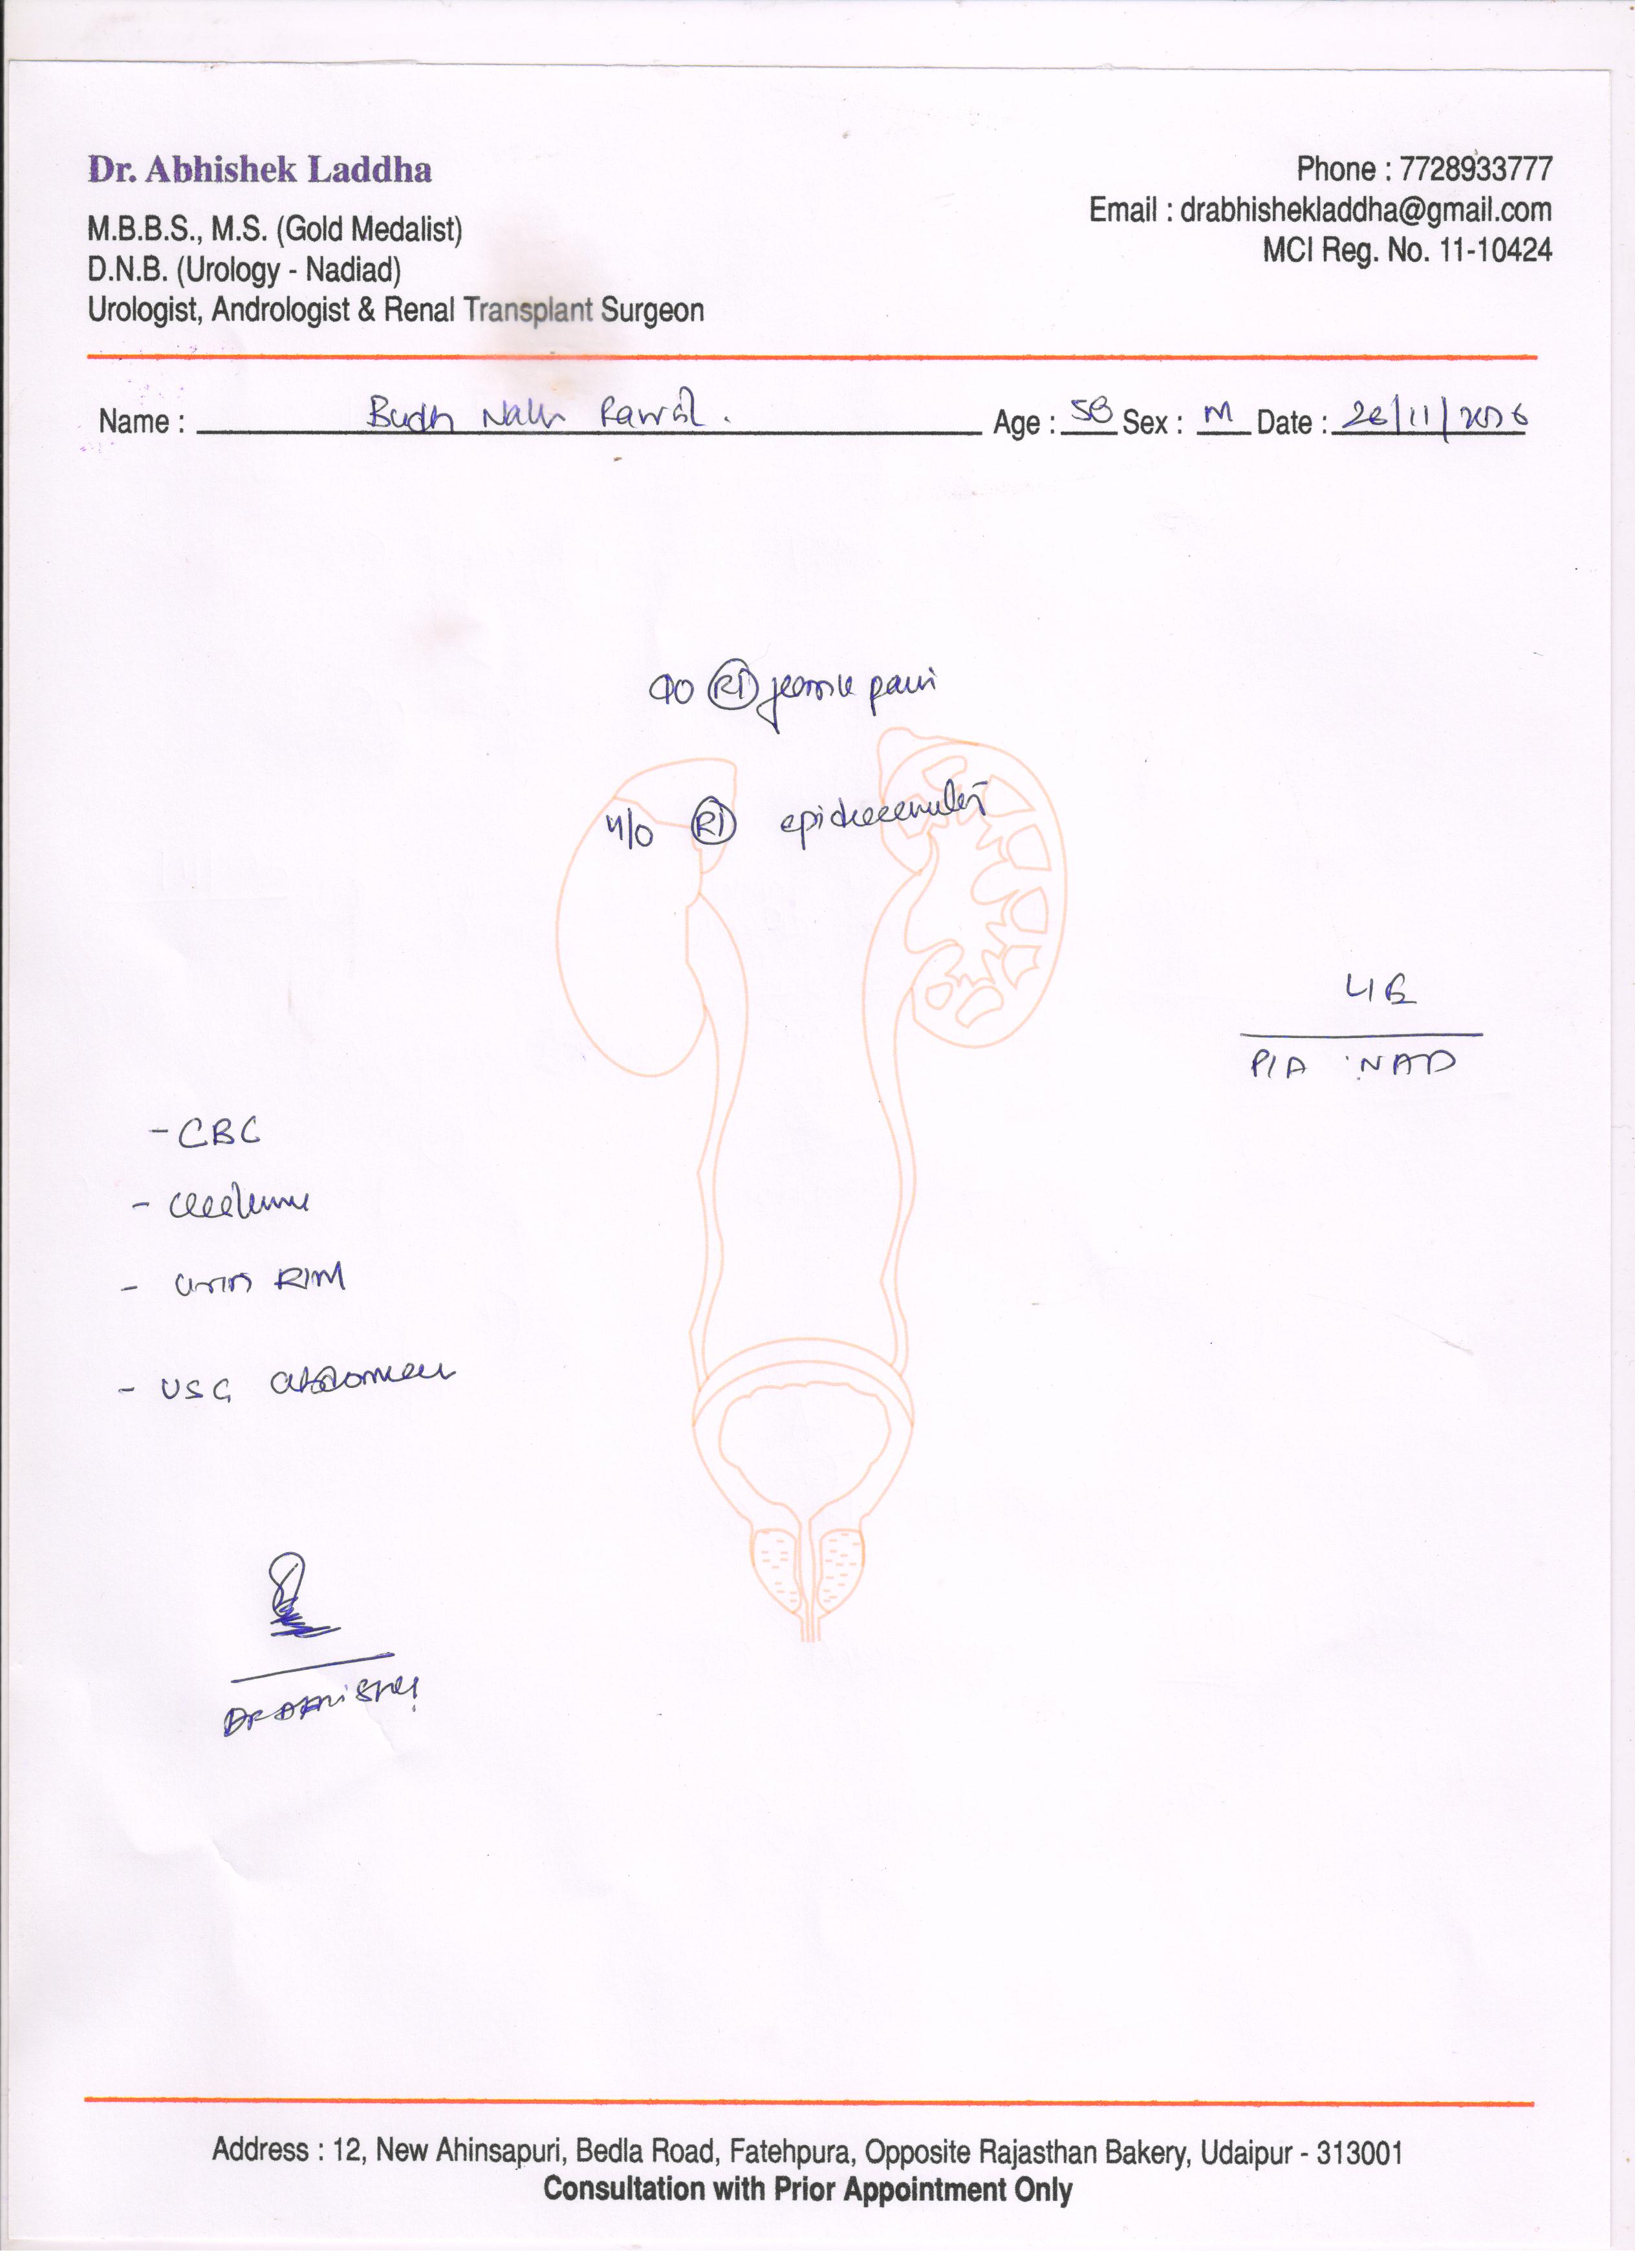 Dr. Abhishek Laddha
M.B.B.S., M.S. (Gold Medalist)
D.N.B. (Urology - Nadiad)
Urologist, Andrologist & Renal Transplant Surgeon
Phone : 7728933777
Email : drabhishekladdha@gmail.com
MCI Reg. No. 11-10424
Name : Budh Nath Rawal. Age : 58 Sex : M Date : 26/11/2026
C/O RT pain
H/O RT
O/E
P/A NAD
- CBC
- Urine R/M
- USG abdomen
Address : 12, New Ahinsapuri, Bedla Road, Fatehpura, Opposite Rajasthan Bakery, Udaipur - 313001
Consultation with Prior Appointment Only